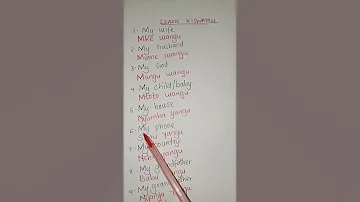 LEARN KISWAHILI
1. My wife
Mke wangu
2. My husband
Mume wangu
3. My God
Mungu wangu
4. My child/baby
Mtoto wangu
5. My house
Nyumba yangu
6. My phone
yangu
7. My country
8. My grandfather
Babu
9. My